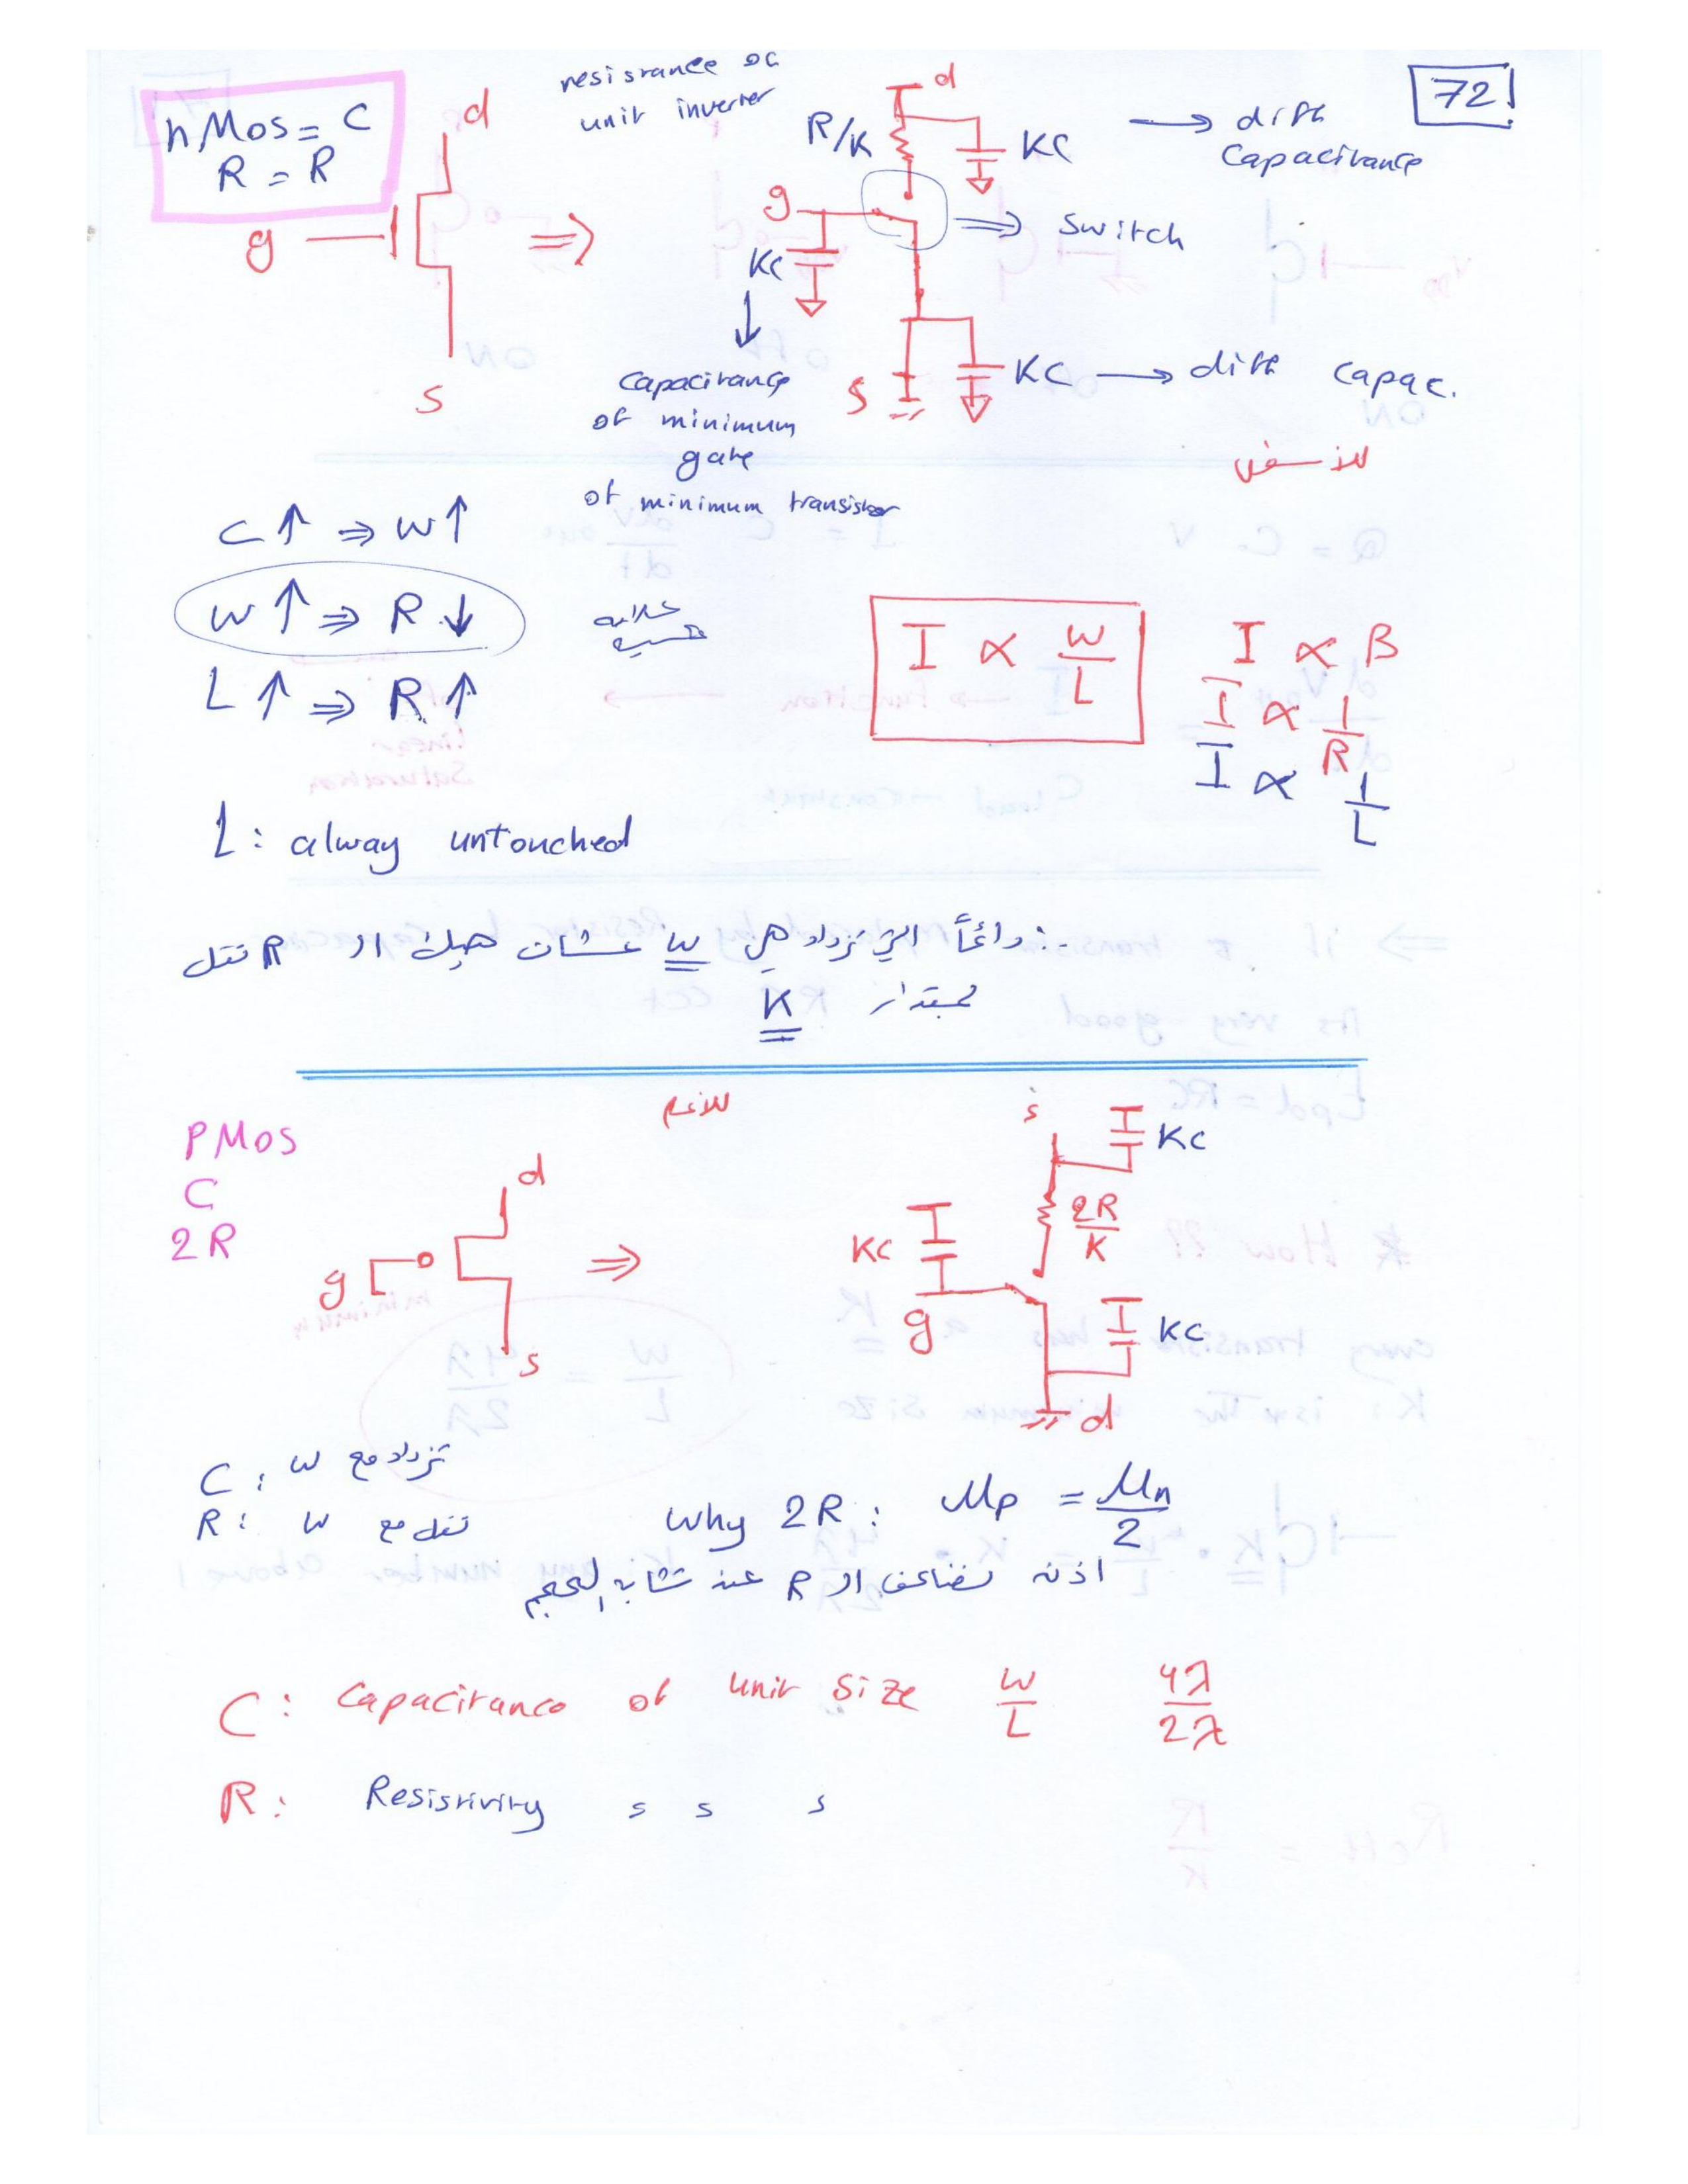 72
nMos = C
R = R
d
g
s
resisrance oc
unit inverter
d
R/K
KC → diff
Capacitance
g
KC
⇒ Switch
Capacitance
of minimum
gate
of minimum transistor
s
KC → diff capac.
للأسفل
C↑ ⇒ W↑
W↑ ⇒ R↓
علاقة
عكسية
L↑ ⇒ R↑
I ∝ W/L
I ∝ β
I ∝ 1/R
I ∝ 1/L
L: alway untouched
∴ دائماً التي تزداد هي W عشان هيك ال R تقل
بمقدار K
للأعلى
PMos
C
2R
d
g
s
⇒
s
KC
2R/K
KC
g
KC
d
C: W تزداد مع
R: W تقل مع
Why 2R: Mp = Mn/2
اذن نضاعف ال R عند تشابه الحجم
C: Capacitance of unit Size W/L 4λ/2λ
R: Resistivity s s s